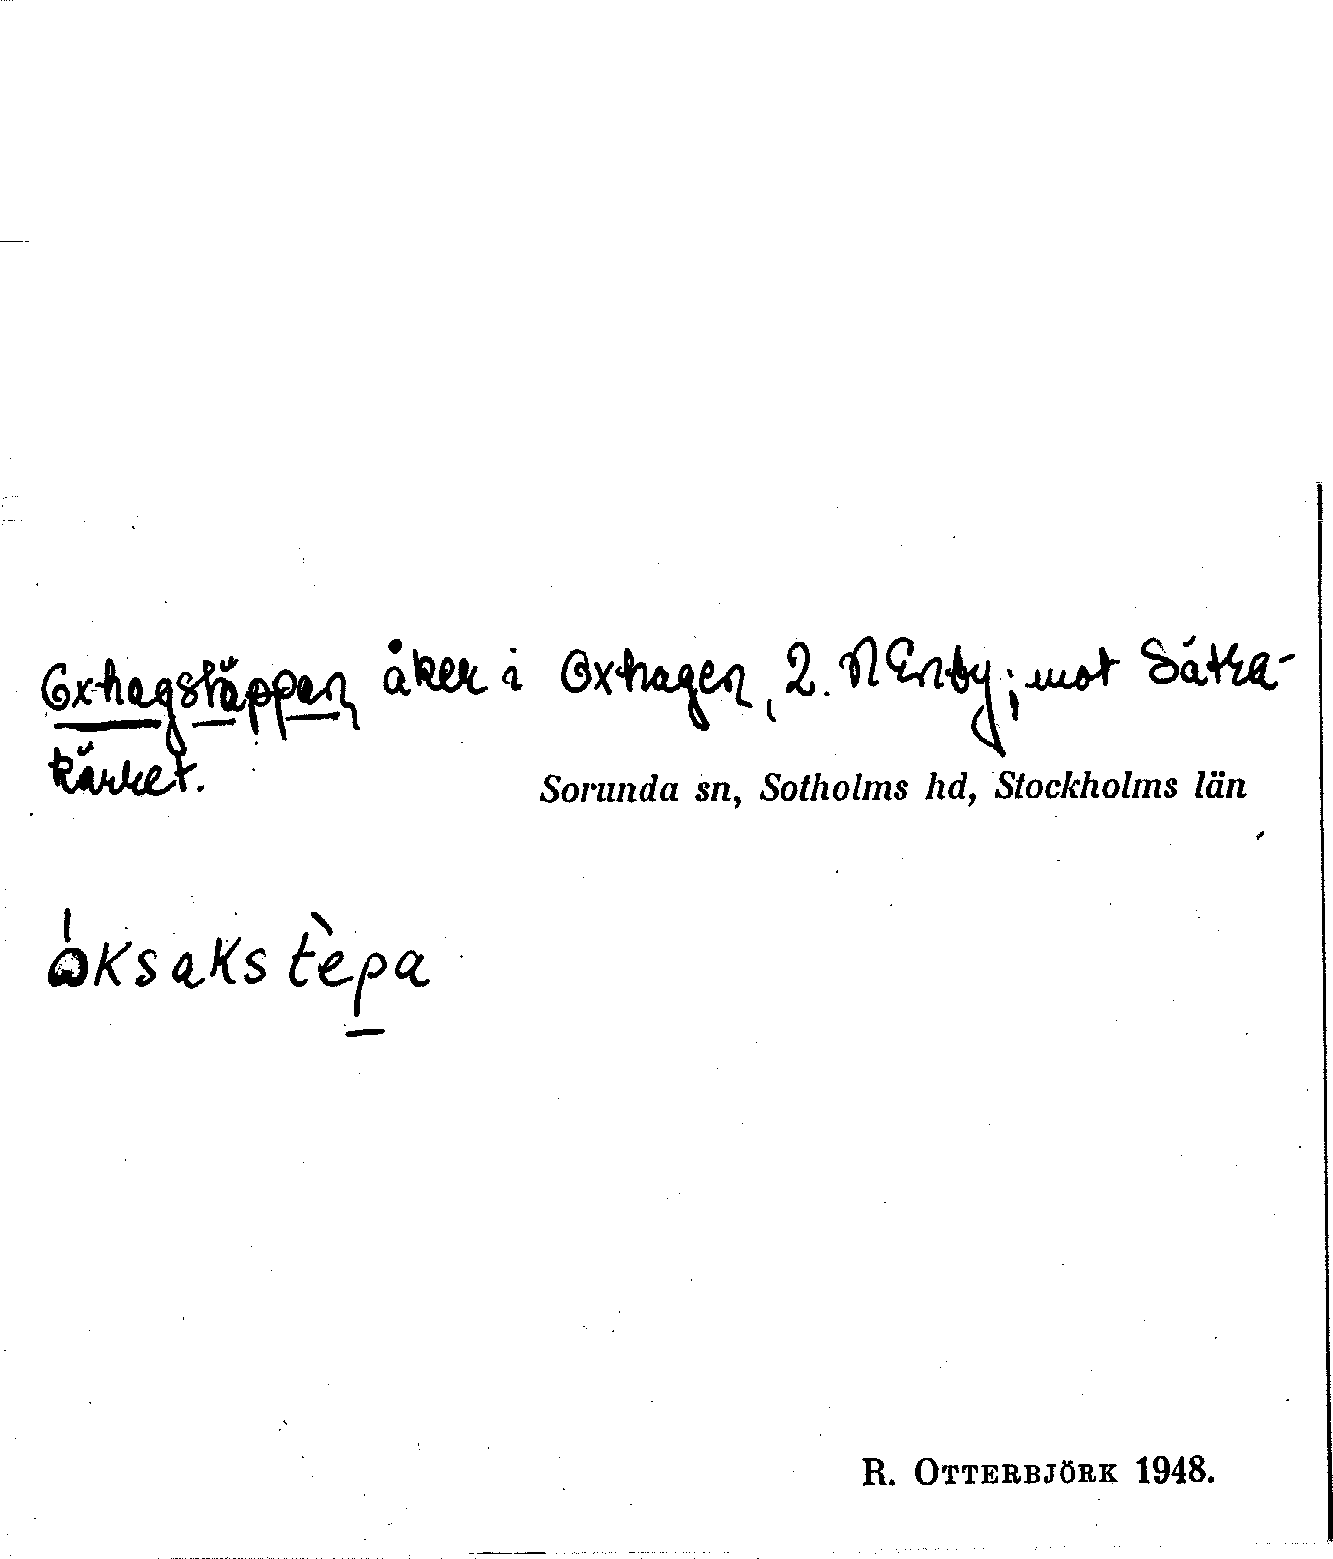 Oxhagstäppan åker i Oxhagen, 2. N Enby; mot Sätra-
kärret.
Sorunda sn, Sotholms hd, Stockholms län
åksakstèpa
R. OTTERBJÖRK 1948.